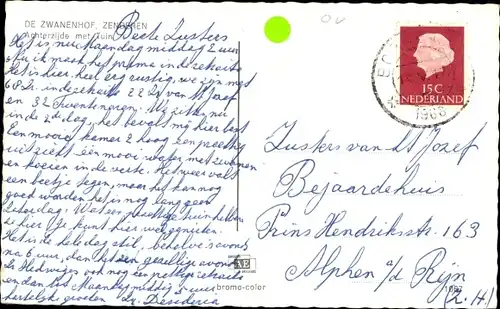 DE ZWANENHOF, ZENDEREN
Achterzijde met tuin
Beste Zusters
Het is nu Maandag middag 2 uur
en ik maak het prima in de retraite
Het is hier heel erg rustig, we zijn met
in de retraite 22 Zr v St Jozef
en 32 Twentenaren. Wij zitten
in de 2e dag, het bevalt mij hier best
Een mooie kamer 2 hoog een prachtig
uitzicht een mooie water met zwanen
en koeien in de verte. Het weer valt
een beetje tegen, maar het kan nog
goed worden het is nog lang geen
Zaterdag. Wat een prachtige tuin hebben
ze hier
Het is de hele dag stil, behalve 's avonds
na 6 uur, dan een gezellige avond
Zr Hedwiges ook nog een prettige retraite
en dan tot Maandag middag 2 uur
hartelijke groeten Zr. Desideria
15C
NEDERLAND
1968
Zusters van St Jozef
Bejaardehuis
Prins Hendrikstr. 163
Alphen a/d Rijn
(Z.H)
bromo-color